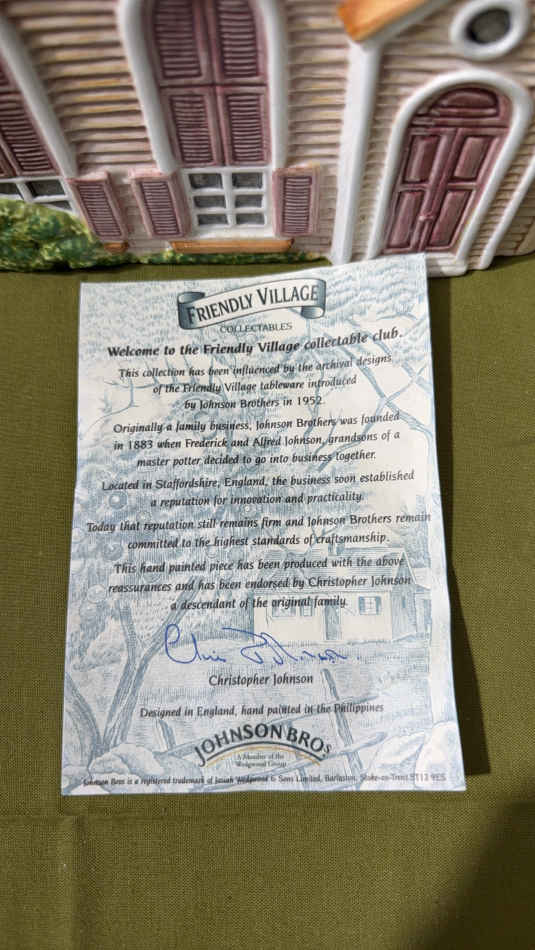 FRIENDLY VILLAGE
COLLECTABLES
Welcome to the Friendly Village collectable club.
This collection has been influenced by the archival designs
of the Friendly Village tableware introduced
by Johnson Brothers in 1952.
Originally a family business, Johnson Brothers was founded
in 1883 when Frederick and Alfred Johnson, grandsons of a
master potter decided to go into business together.
Located in Staffordshire, England, the business soon established
a reputation for innovation and practicality.
Today that reputation still remains firm and Johnson Brothers remain
committed to the highest standards of craftsmanship.
This hand painted piece has been produced with the above
reassurances and has been endorsed by Christopher Johnson
a descendant of the original family.
Christopher Johnson
Designed in England, hand painted in the Philippines
JOHNSON BROS
A Member of the
Wedgwood Group
Johnson Bros is a registered trademark of Josiah Wedgwood & Sons Limited, Barlaston, Stoke-on-Trent ST12 9ES